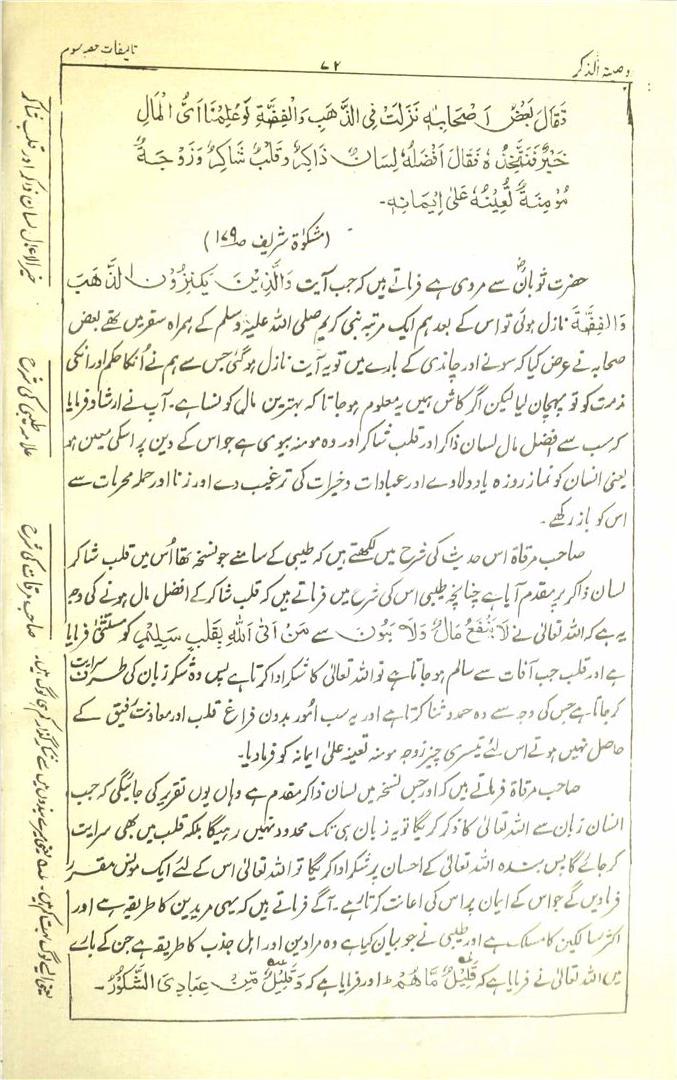 وصیۃ الذکر
۷۲
تالیفات حصہ سوم
فَقَالَ بَعْضُ اَصْحَابِہٖ نَزَلَتْ فِی الذَّھَبِ وَالْفِضَّۃِ لَوْعُلِمْنَا اَیُّ الْمَالِ
خَیْرٌ فَنَتَّخِذُہٗ فَقَالَ اَفْضَلُہٗ لِسَانٌ ذَاکِرٌ وَقَلْبٌ شَاکِرٌ وَزَوْجَۃٌ
مُؤْمِنَۃٌ تُعِیْنُہٗ عَلیٰ اِیْمَانِہٖ۔
(مشکوٰۃ شریف ص۱۷۹)
حضرت ثوبانؓ سے مروی ہے فرماتے ہیں کہ جب آیت وَالَّذِیْنَ یَکْنِزُوْنَ الذَّھَبَ
وَالْفِضَّۃَ نازل ہوئی تو اس کے بعد ہم ایک مرتبہ نبی کریم صلی اللہ علیہ وسلم کے ہمراہ سفر میں تھے بعض
صحابہ نے عرض کیا کہ سونے اور چاندی کے بارے میں تو یہ آیت نازل ہوگئی جس سے ہم نے اُنکا حکم اور انکی
مذمت کو تو پہچان لیا لیکن اگر کاش ہمیں یہ معلوم ہوجاتا کہ بہترین مال کونسا ہے۔ آپ نے ارشاد فرمایا
کہ سب سے افضل مال لسان ذاکر اور قلب شاکر اور وہ مومنہ بیوی ہے جو اس کے دین پر اسکی معین ہو
یعنی انسان کو نماز روزہ یاد دلاوے اور عبادات وخیرات کی ترغیب دے اور زنا اور جملہ محرمات سے
اس کو باز رکھے۔
صاحب مرقاۃ اس حدیث کی شرح میں لکھتے ہیں کہ طیبی کے سامنے جو نسخہ تھا اُس میں قلب شاکر
لسان ذاکر پر مقدم آیا ہے چنانچہ طیبی اس کی شرح میں فرماتے ہیں کہ قلب شاکر کے افضل مال ہونے کی وجہ
یہ ہے کہ اللہ تعالیٰ نے لَا یَنْفَعُ مَالٌ وَلَا بَنُوْنَ سے مَنْ اَتَی اللّٰہَ بِقَلْبٍ سَلِیْمٍ کو مستثنیٰ فرمایا
ہے اور قلب جب آفات سے سالم ہوجاتا ہے تو اللہ تعالیٰ کا شکر ادا کرتا ہے پس وہ شکر زبان کی طرف سرایت
کرجاتا ہے جس کی وجہ سے وہ حمد وثنا کرتا ہے اور یہ سب اُمور بدون فراغ قلب اور معاونت رفیق کے
حاصل نہیں ہوتے اس لئے تیسری چیز زوجہ مومنہ تعینہ علیٰ ایمانہ کو فرمادیا۔
صاحب مرقاۃ فرماتے ہیں کہ اور جس نسخہ میں لسان ذاکر مقدم ہے وہاں یوں تقریر کی جائیگی کہ جب
انسان زبان سے اللہ تعالیٰ کا ذکر کریگا تو یہ زبان ہی تک محدود نہیں رہیگا بلکہ قلب میں بھی سرایت
کرجائے گا پس بندہ اللہ تعالیٰ کے احسان پر شکر ادا کریگا تو اللہ تعالیٰ اس کے لئے ایک مونس مقرر
فرمادیں گے جو اس کے ایمان پر اس کی اعانت کرتا رہے۔ آگے فرماتے ہیں کہ یہی مریدین کا طریقہ ہے اور
اکثر سالکین کا مسلک ہے اور طیبی نے جو بیان کیا ہے وہ مرادین اور اہل جذب کا طریقہ ہے جن کے بارے
میں اللہ تعالیٰ نے فرمایا ہے کہ قَلِیْلٌ مَّا ھُمْ اور فرمایا ہے کہ وَقَلِیْلٌ مِّنْ عِبَادِیَ الشَّکُوْرُ۔
خیر الاعمال لسان ذاکر اور قلب شاکر
علامہ طیبی کی شرح
صاحب مرقات کی شرح
یعنی ایسے لوگ بہت کم ہیں۔ یعنی میرے بندوں میں سے شکر گذار کم ہی لوگ ہیں۔